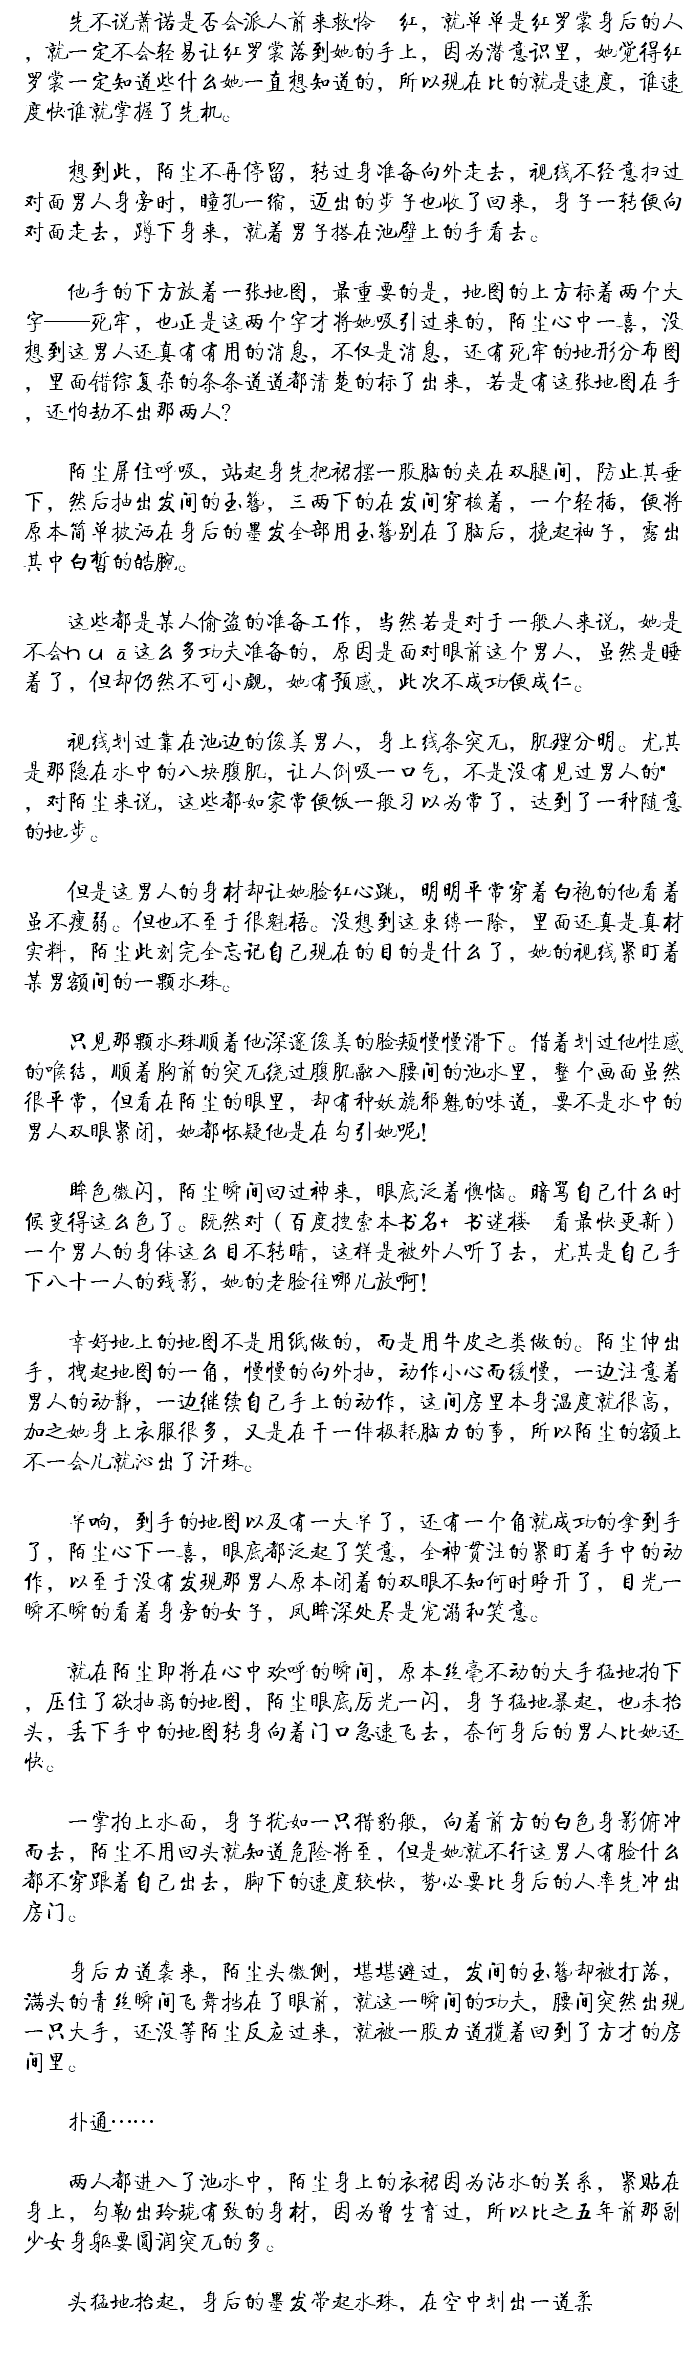 先不说萧诺是否会派人前来救怜 红，就单单是红罗裳身后的人
，就一定不会轻易让红罗裳落到她的手上，因为潜意识里，她觉得红
罗裳一定知道些什么她一直想知道的，所以现在比的就是速度，谁速
度快谁就掌握了先机。
想到此，陌尘不再停留，转过身准备向外走去，视线不经意扫过
对面男人身旁时，瞳孔一缩，迈出的步子也收了回来，身子一转便向
对面走去，蹲下身来，就着男子搭在池壁上的手看去。
他手的下方放着一张地图，最重要的是，地图的上方标着两个大
字——死牢，也正是这两个字才将她吸引过来的，陌尘心中一喜，没
想到这男人还真有有用的消息，不仅是消息，还有死牢的地形分布图
，里面错综复杂的条条道道都清楚的标了出来，若是有这张地图在手
，还怕劫不出那两人？
陌尘屏住呼吸，站起身先把裙摆一股脑的夹在双腿间，防止其垂
下，然后抽出发间的玉簪，三两下的在发间穿梭着，一个轻插，便将
原本简单披洒在身后的墨发全部用玉簪别在了脑后，挽起袖子，露出
其中白皙的皓腕。
这些都是某人偷盗的准备工作，当然若是对于一般人来说，她是
不会huā这么多功夫准备的，原因是面对眼前这个男人，虽然是睡
着了，但却仍然不可小觑，她有预感，此次不成功便成仁。
视线划过靠在池边的俊美男人，身上线条突兀，肌理分明。尤其
是那隐在水中的八块腹肌，让人倒吸一口气，不是没有见过男人的*
，对陌尘来说，这些都如家常便饭一般习以为常了，达到了一种随意
的地步。
但是这男人的身材却让她脸红心跳，明明平常穿着白袍的他看着
虽不瘦弱。但也不至于很魁梧。没想到这束缚一除，里面还真是真材
实料，陌尘此刻完全忘记自己现在的目的是什么了，她的视线紧盯着
某男额间的一颗水珠。
只见那颗水珠顺着他深邃俊美的脸颊慢慢滑下。借着划过他性感
的喉结，顺着胸前的突兀绕过腹肌融入腰间的池水里，整个画面虽然
很平常，但看在陌尘的眼里，却有种妖旎邪魅的味道，要不是水中的
男人双眼紧闭，她都怀疑他是在勾引她呢！
眸色微闪，陌尘瞬间回过神来，眼底泛着懊恼。暗骂自己什么时
候变得这么色了。既然对（百度搜索本书名+ 书迷楼 看最快更新）
一个男人的身体这么目不转睛，这样是被外人听了去，尤其是自己手
下八十一人的残影，她的老脸往哪儿放啊！
幸好地上的地图不是用纸做的，而是用牛皮之类做的。陌尘伸出
手，拽起地图的一角，慢慢的向外抽，动作小心而缓慢，一边注意着
男人的动静，一边继续自己手上的动作，这间房里本身温度就很高，
加之她身上衣服很多，又是在干一件极耗脑力的事，所以陌尘的额上
不一会儿就沁出了汗珠。
半响，到手的地图以及有一大半了，还有一个角就成功的拿到手
了，陌尘心下一喜，眼底都泛起了笑意，全神贯注的紧盯着手中的动
作，以至于没有发现那男人原本闭着的双眼不知何时睁开了，目光一
瞬不瞬的看着身旁的女子，凤眸深处尽是宠溺和笑意。
就在陌尘即将在心中欢呼的瞬间，原本丝毫不动的大手猛地拍下
，压住了欲抽离的地图，陌尘眼底厉光一闪，身子猛地暴起，也未抬
头，丢下手中的地图转身向着门口急速飞去，奈何身后的男人比她还
快。
一掌拍上水面，身子犹如一只猎豹般，向着前方的白色身影俯冲
而去，陌尘不用回头就知道危险将至，但是她就不行这男人有脸什么
都不穿跟着自己出去，脚下的速度较快，势必要比身后的人率先冲出
房门。
身后力道袭来，陌尘头微侧，堪堪避过，发间的玉簪却被打落，
满头的青丝瞬间飞舞挡在了眼前，就这一瞬间的功夫，腰间突然出现
一只大手，还没等陌尘反应过来，就被一股力道揽着回到了方才的房
间里。
扑通……
两人都进入了池水中，陌尘身上的衣裙因为沾水的关系，紧贴在
身上，勾勒出玲珑有致的身材，因为曾生育过，所以比之五年前那副
少女身躯要圆润突兀的多。
头猛地抬起，身后的墨发带起水珠，在空中划出一道柔